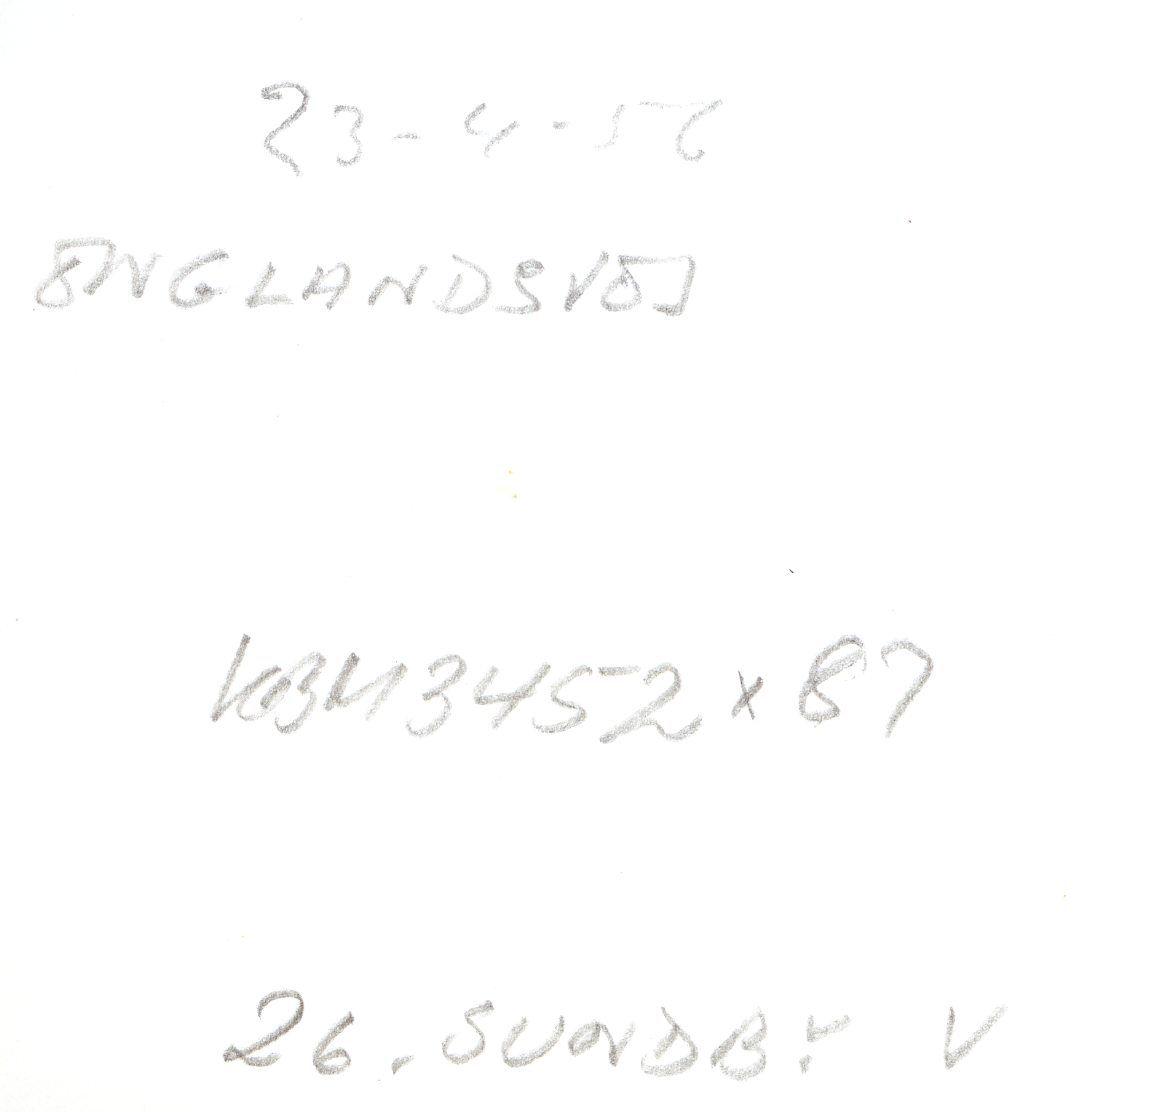 23-4-56
ENGLANDSVEJ
KBH 3452 x 87
26. SUNDBY V